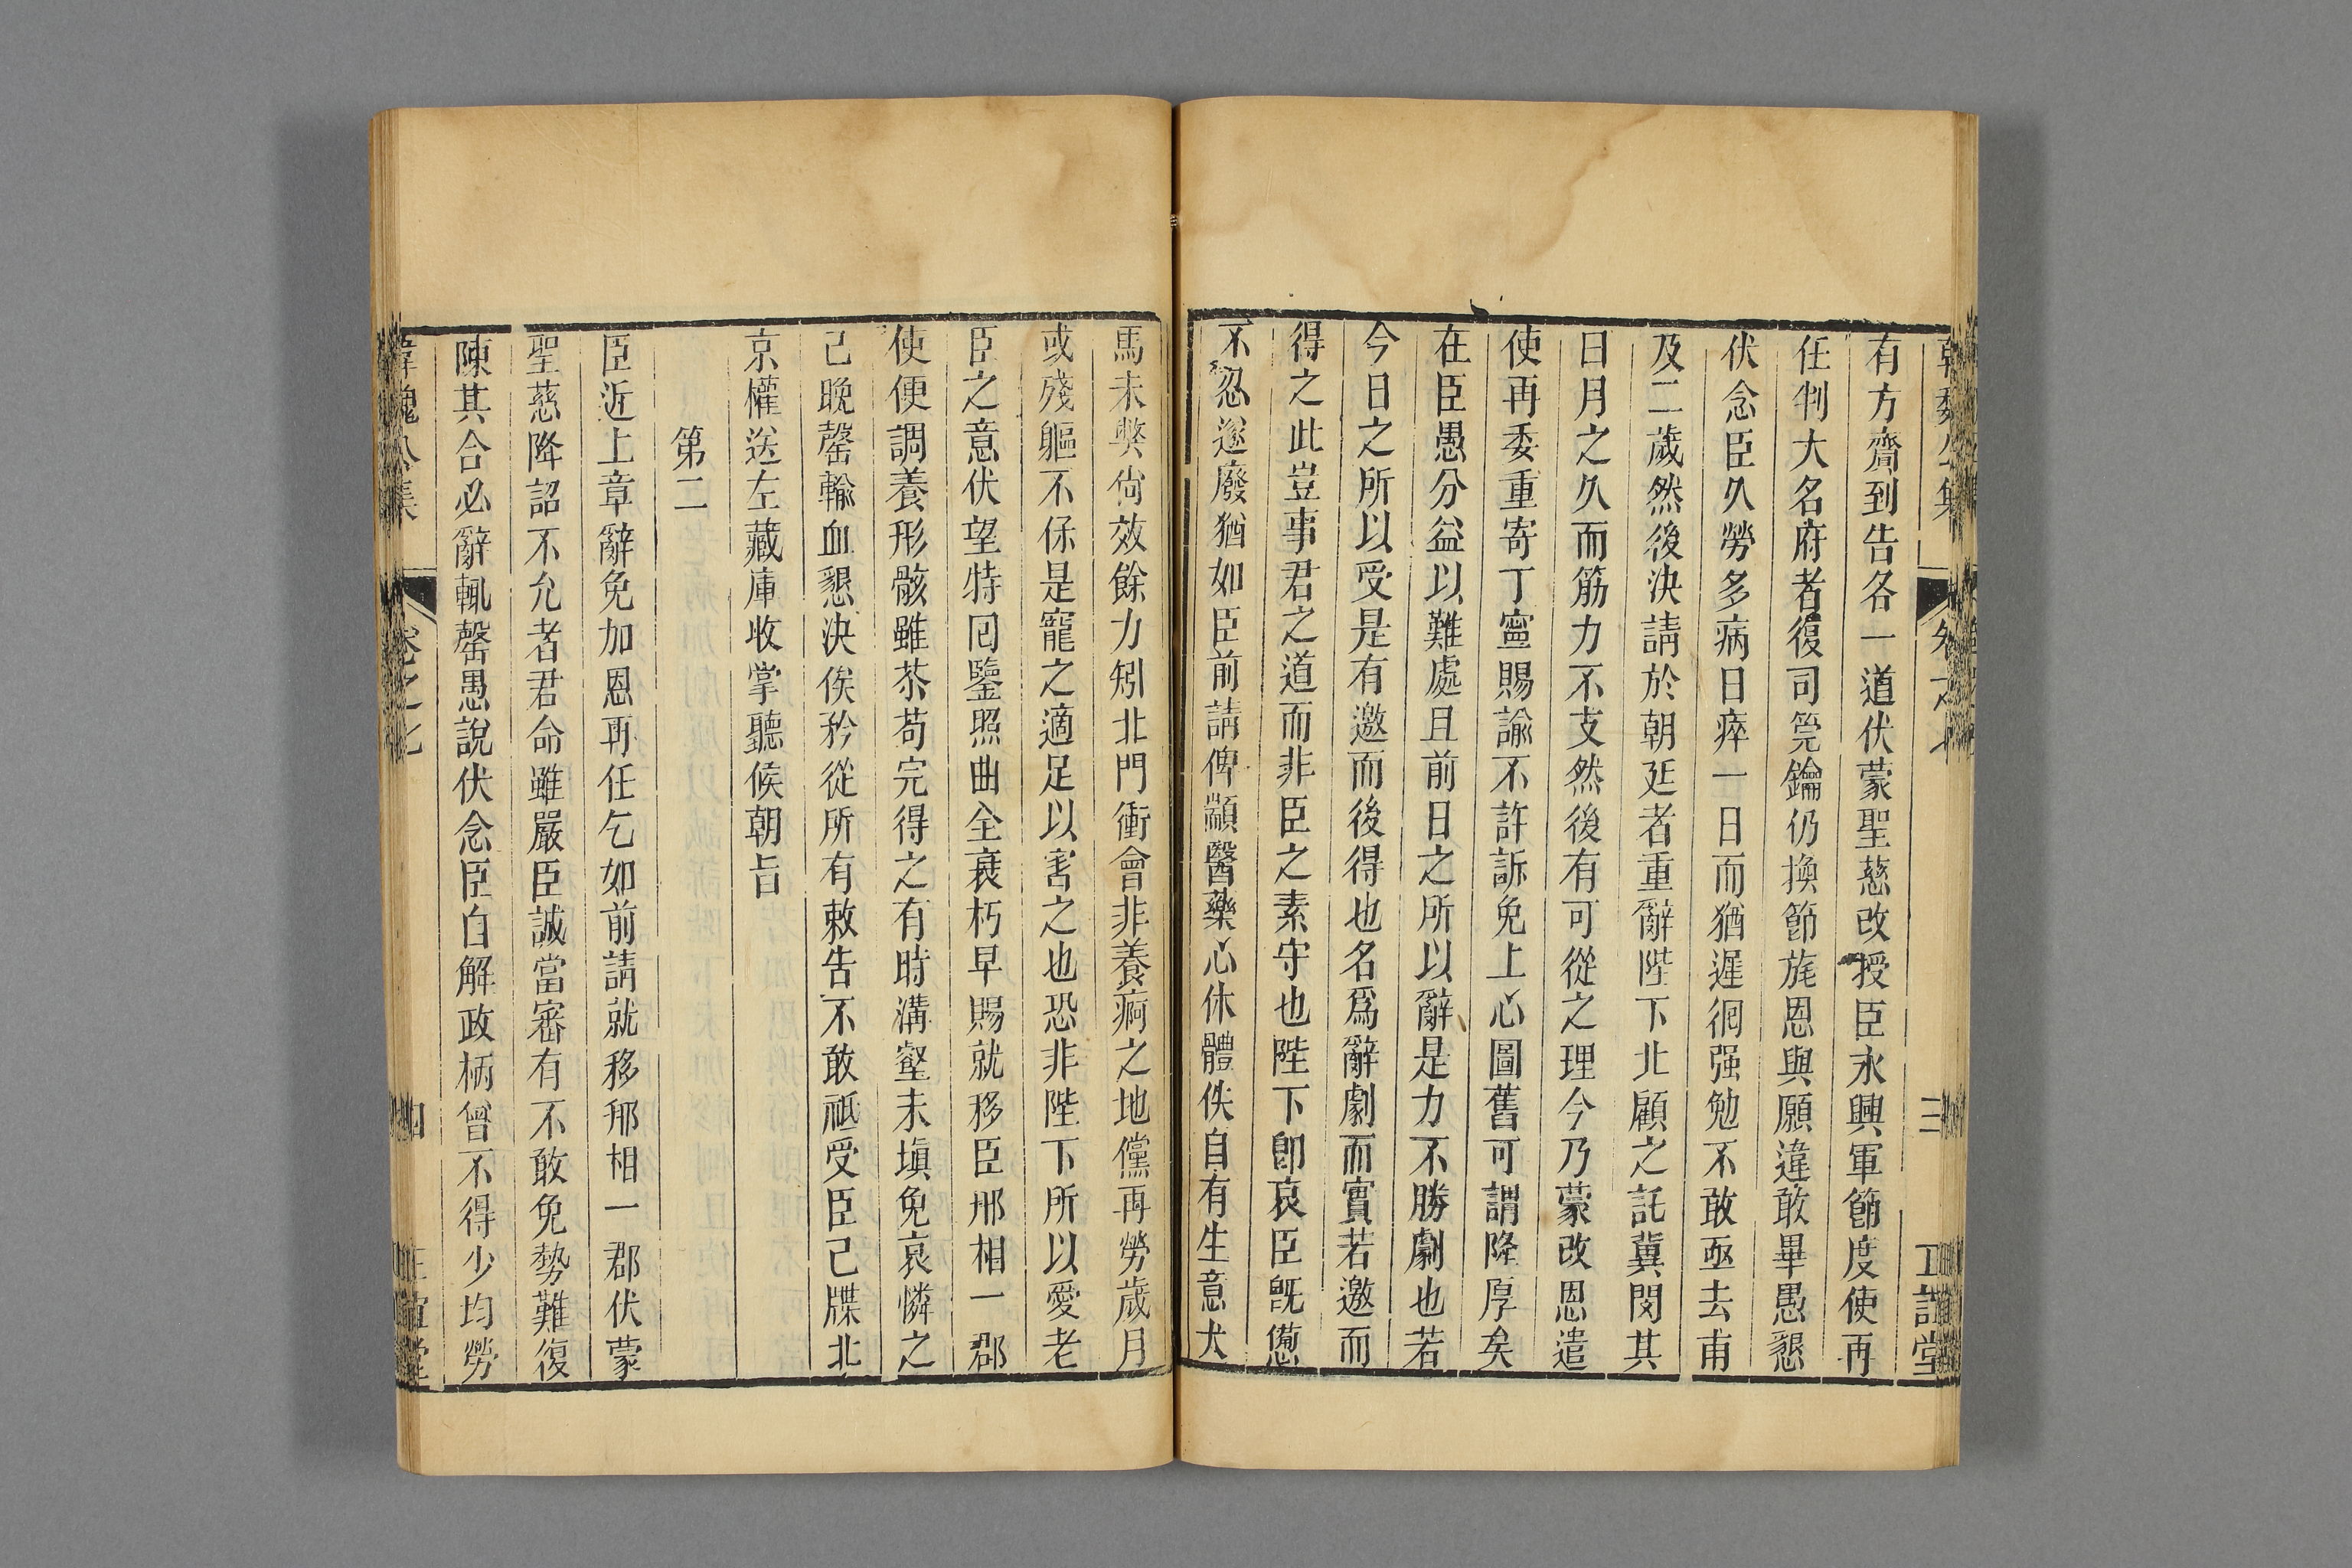 有方齎到告各一道伏蒙聖慈改授臣永興軍節度使再
任判大名府者復司筦鑰仍換節旄恩與願違敢畢愚懇
伏念臣久勞多病日瘁一日而猶遲徊强勉不敢亟去甫
及二歲然後決請於朝廷者重辭陛下北顧之託冀閔其
日月之久而筋力不支然後有可從之理今乃蒙改恩遣
使再委重寄丁寧賜諭不許訴免上心圖舊可謂降厚矣
在臣愚分益以難處且前日之所以辭是力不勝劇也若
今日之所以受是有邀而後得也名爲辭劇而實若邀而
得之此豈事君之道而非臣之素守也陛下卽哀臣旣憊
不忍遂廢猶如臣前請俾顓醫藥心休體佚自有生意犬
馬未弊尙效餘力矧北門衝會非養痾之地儻再勞歲月
或殘軀不保是寵之適足以害之也恐非陛下所以愛老
臣之意伏望特囘鑒照曲全衰朽早賜就移臣邢相一郡
使便調養形骸雖苶苟完得之有時溝壑未塡免哀憐之
已晚罄輸血懇決俟矜從所有敕告不敢祗受臣已牒北
京權送左藏庫收掌聽候朝旨
第二
臣近上章辭免加恩再任乞如前請就移邢相一郡伏蒙
聖慈降詔不允者君命雖嚴臣誠當審有不敢免勢難復
陳其合必辭輒罄愚說伏念臣自解政柄曾不得少均勞
韓魏公集 卷之七 四 正誼堂